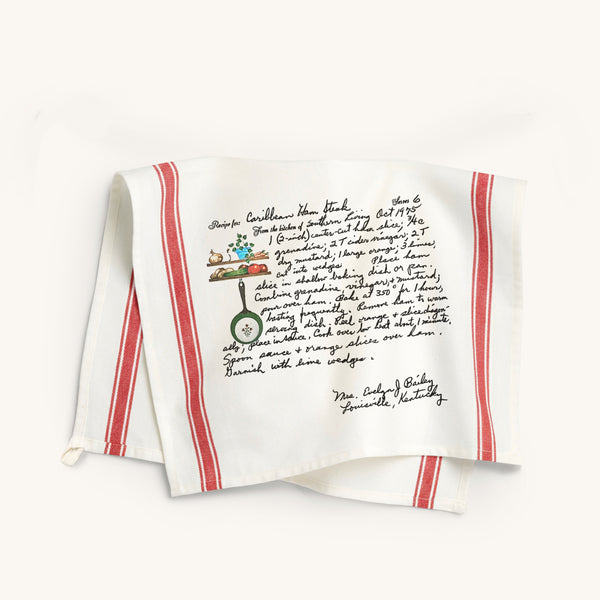 Recipe for: Caribbean Ham Steak Serves 6
From the kitchen of Southern Living Oct 1975
1 (2-inch) center-cut ham slice; 3/4 c
grenadine; 2 T cider vinegar; 2 T
dry mustard; 1 large orange; 3 limes,
cut into wedges Place ham
slice in shallow baking dish or pan.
Combine grenadine, vinegar, & mustard;
pour over ham. Bake at 350° for 1 hour,
basting frequently. Remove ham to warm
serving dish. Peel orange & slice diagon-
ally; place in sauce. Cook over low heat abt. 1 minute.
Spoon sauce & orange slices over ham.
Garnish with lime wedges.
Mrs. Evelyn J Bailey
Louisville, Kentucky